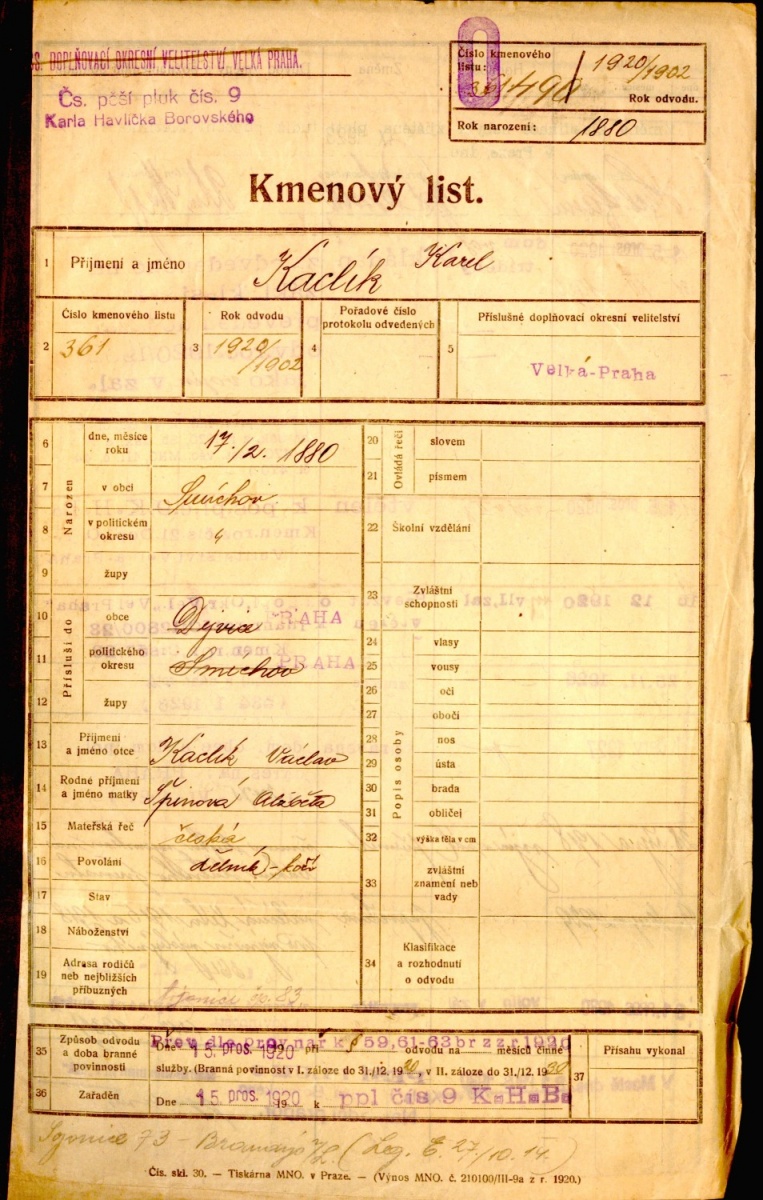 ČS. DOPLŇOVACÍ OKRESNÍ VELITELSTVÍ VELKÁ PRAHA.
Čs. pěší pluk čís. 9
Karla Havlíčka Borovského
Číslo kmenového
listu:
1920/1902
Rok odvodu.
Rok narození: 1880
Kmenový list.
1 Příjmení a jméno Kaclík Karel
2 Číslo kmenového listu 361
3 Rok odvodu 1920/1902
4 Pořadové číslo protokolu odvedených
5 Příslušné doplňovací okresní velitelství Velká-Praha
Narozen
6 dne, měsíce roku 17./2. 1880
7 v obci Smíchov
8 v politickém okresu "
9 župy
Přísluší do
10 obce Dejvice PRAHA
11 politického okresu Smíchov PRAHA
12 župy
13 Příjmení a jméno otce Kaclík Václav
14 Rodné příjmení a jméno matky Špinová Alžběta
15 Mateřská řeč česká
16 Povolání dělník - kočí
17 Stav
18 Náboženství
19 Adresa rodičů neb nejbližších příbuzných čp. 83.
Ovládá řeči
20 slovem
21 písmem
22 Školní vzdělání
23 Zvláštní schopnosti
Popis osoby
24 vlasy
25 vousy
26 oči
27 obočí
28 nos
29 ústa
30 brada
31 obličej
32 výška těla v cm
33 zvláštní znamení neb vady
34 Klasifikace a rozhodnutí o odvodu
35 Způsob odvodu a doba branné povinnosti
Přev. dle prov. nař. k § 59,61-63 br z z r 1920
Dne 15. pros. 1920 při odvodu na měsíců činné
služby. (Branná povinnost v I. záloze do 31./12. 1920, v II. záloze do 31./12. 1930
36 Zařaděn Dne 15. pros. 1920 19 k ppl čis 9 K.H.B.
37 Přísahu vykonal
73 - (Leg. E. 27/10. 14.)
Čís. skl. 30. — Tiskárna MNO. v Praze. — (Výnos MNO. č. 210100/III-9a z r. 1920.)